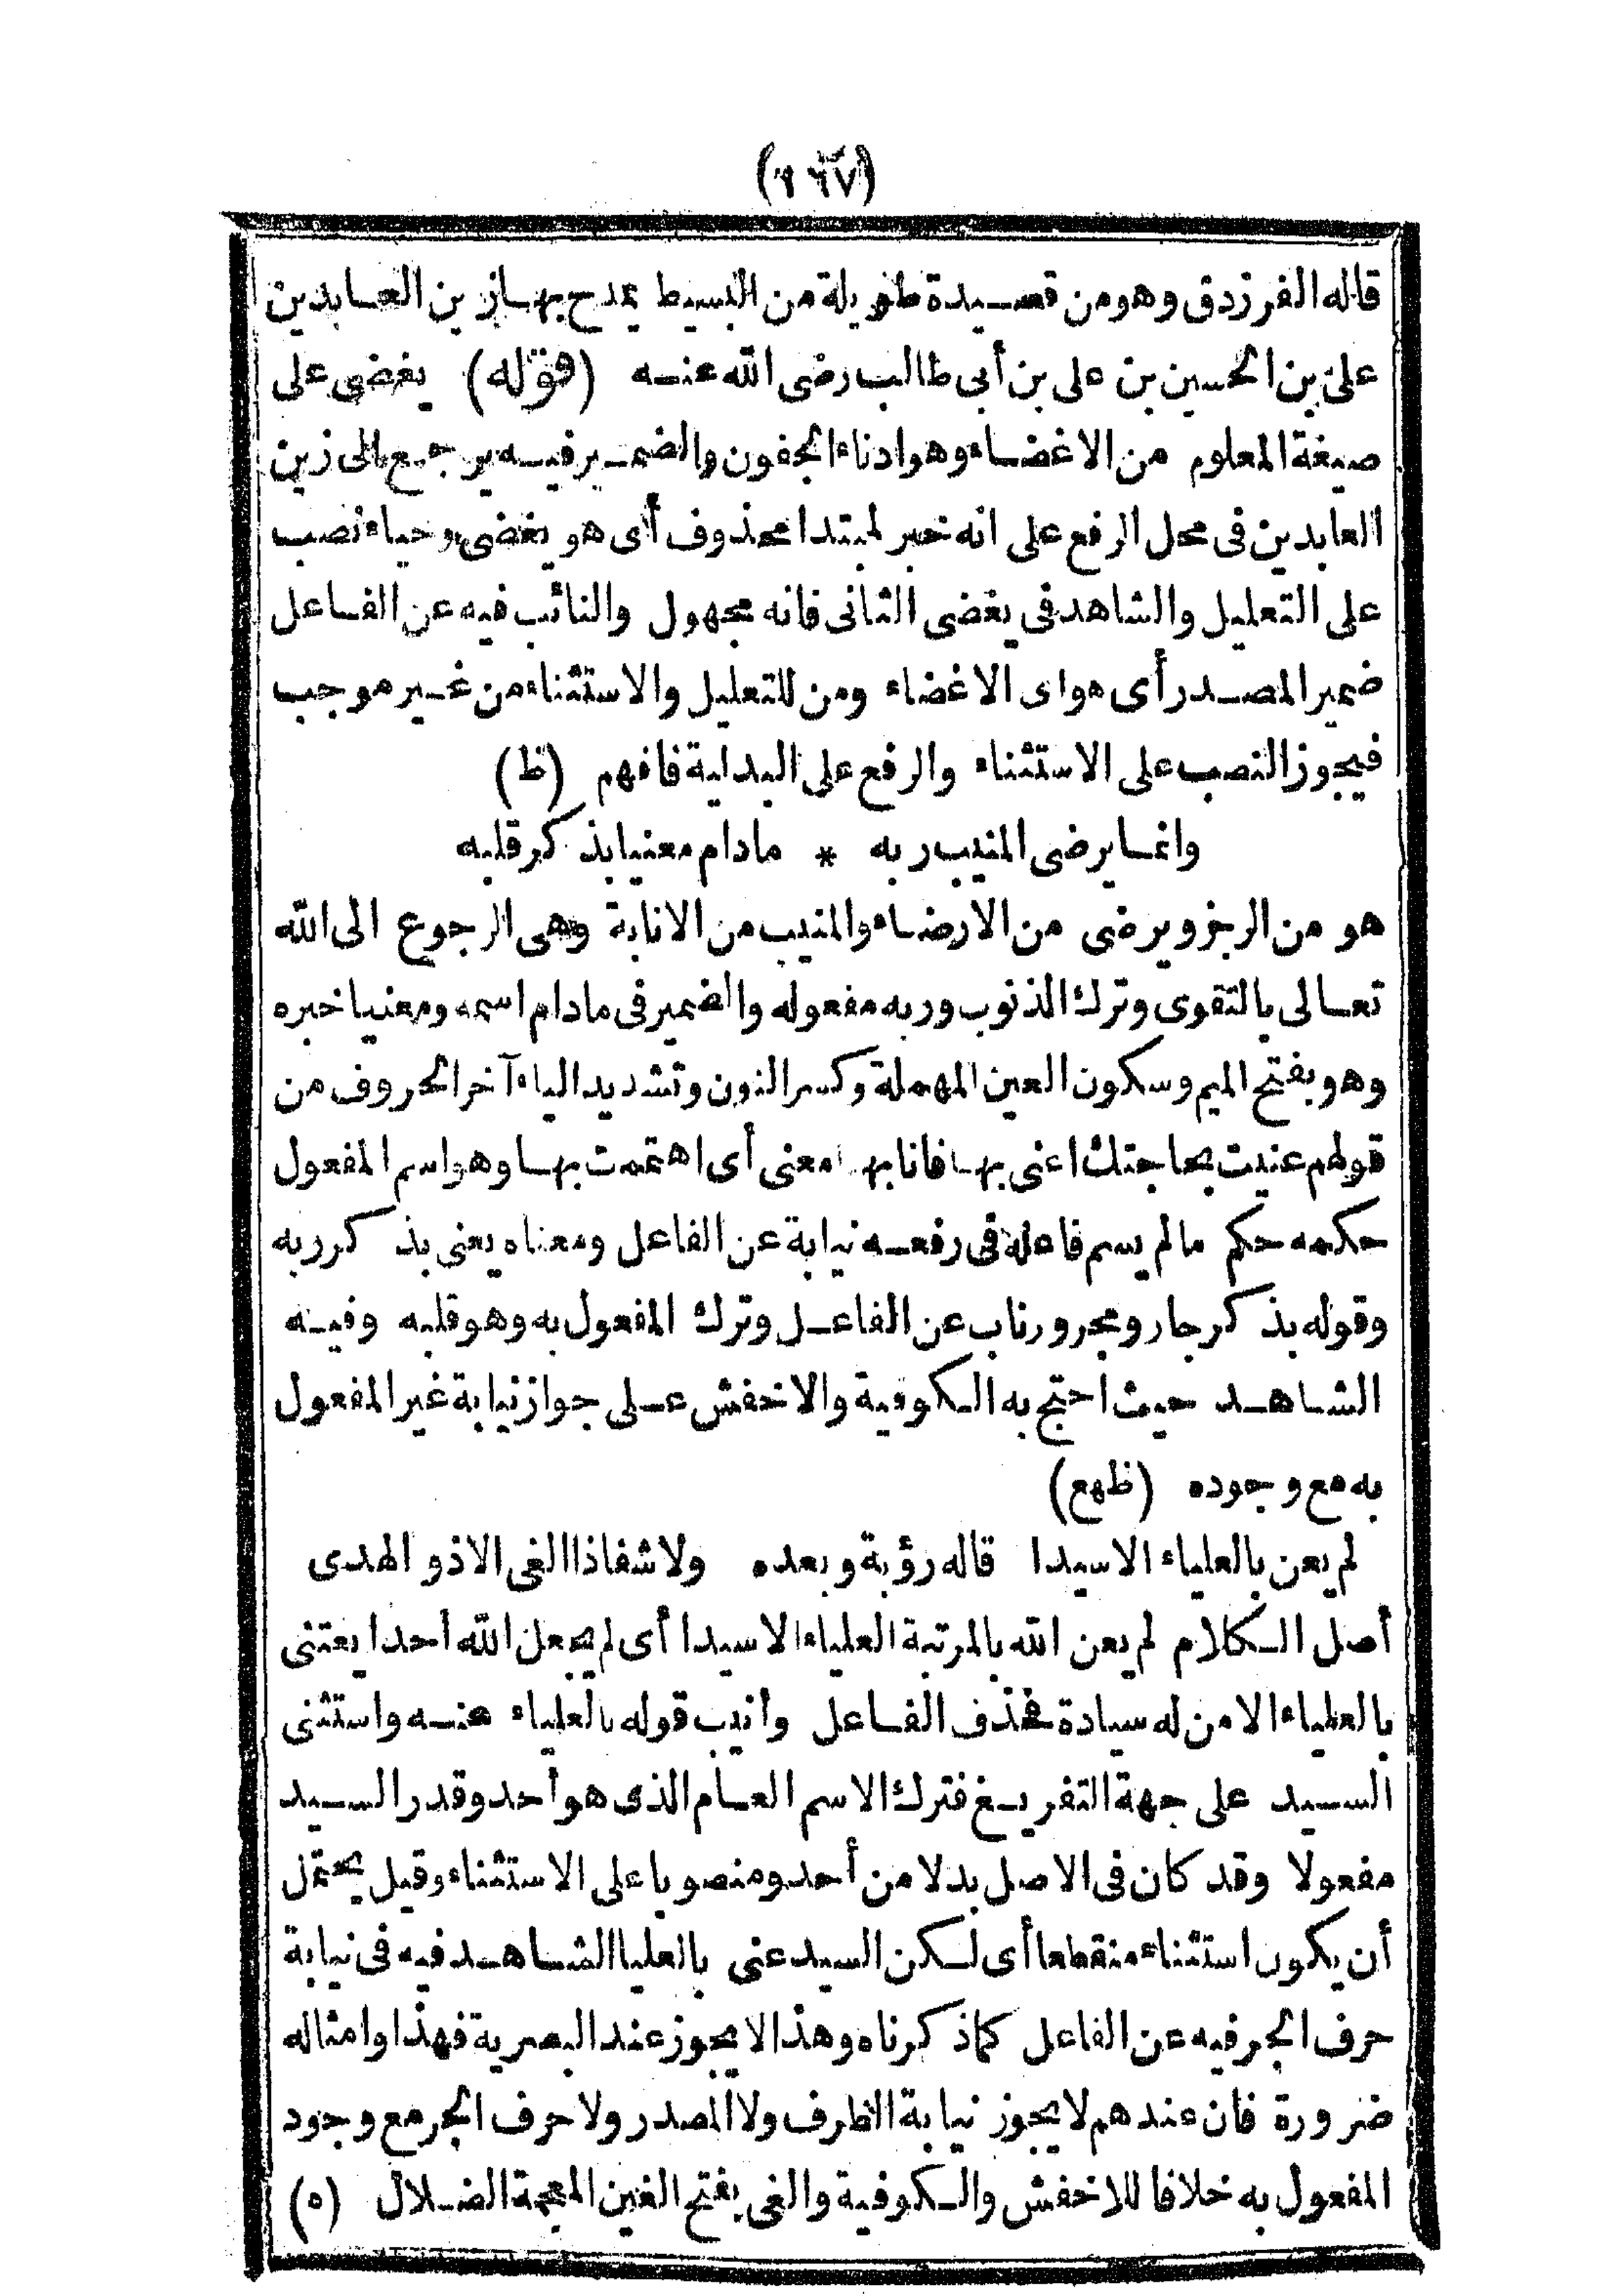 (١٦٧)
قاله الفرزدق وهو من قصيدة طويلة من البسيط يمدح بها زين العابدين
على بن الحسين بن على بن أبى طالب رضى الله عنه (قوله) يغضى على
صيغة المعلوم من الاغضاء وهو ادناء الجفون والضمير فيه يرجع الى زين
العابدين فى محل الرفع على انه خبر لمبتدا محذوف أى هو يغضى وحياء نصب
على التعليل والشاهد فى يغضى الثانى فانه مجهول والنائب فيه عن الفاعل
ضمير المصدر أى هو اى الاغضاء ومن للتعليل والاستثناء من غير موجب
فيجوز النصب على الاستثناء والرفع على البدلية فافهم (ظ)
وانما يرضى المنيب ربه * مادام معنيا بذكر قلبه
هو من الرجز ويرضى من الارضاء والمنيب من الانابة وهى الرجوع الى الله
تعالى بالتقوى وترك الذنوب وربه مفعوله والضمير فى مادام اسمه ومعنيا خبره
وهو بفتح الميم وسكون العين المهملة وكسر النون وتشديد الياء آخر الحروف من
قولهم عنيت بحاجتك اعنى بها فانا بها معنى أى اهتممت بها وهو اسم المفعول
حكمه حكم مالم يسم فاعله فى رفعه نيابة عن الفاعل ومعناه يعنى بذكر ربه
وقوله بذكر جار ومجرور ناب عن الفاعل وترك المفعول به وهو قلبه وفيه
الشاهد حيث احتج به الكوفية والاخفش على جواز نيابة غير المفعول
به مع وجوده (ظهع)
لم يعن بالعلياء الا سيدا قاله رؤبة وبعده ولا شفا ذا الغى الا ذو الهدى
أصل الكلام لم يعن الله بالمرتبة العلياء الا سيدا أى لم يجعل الله احدا يعتنى
بالعلياء الا من له سيادة فحذف الفاعل وانيب قوله بالعلياء عنه واستثنى
السيد على جهة التفريغ فترك الاسم العام الذى هو أحد وقدر السيد
مفعولا وقد كان فى الاصل بدلا من أحد ومنصوبا على الاستثناء وقيل يحتمل
أن يكون استثناء منقطعا أى لكن السيد عنى بالعليا الشاهد فيه فى نيابة
حرف الجر فيه عن الفاعل كما ذكرناه وهذا لا يجوز عند البصرية فهذا وامثاله
ضرورة فان عندهم لا يجوز نيابة الظرف ولا المصدر ولا حرف الجر مع وجود
المفعول به خلافا للاخفش والكوفية والغى بفتح الغين المعجمة الضلال (ه)